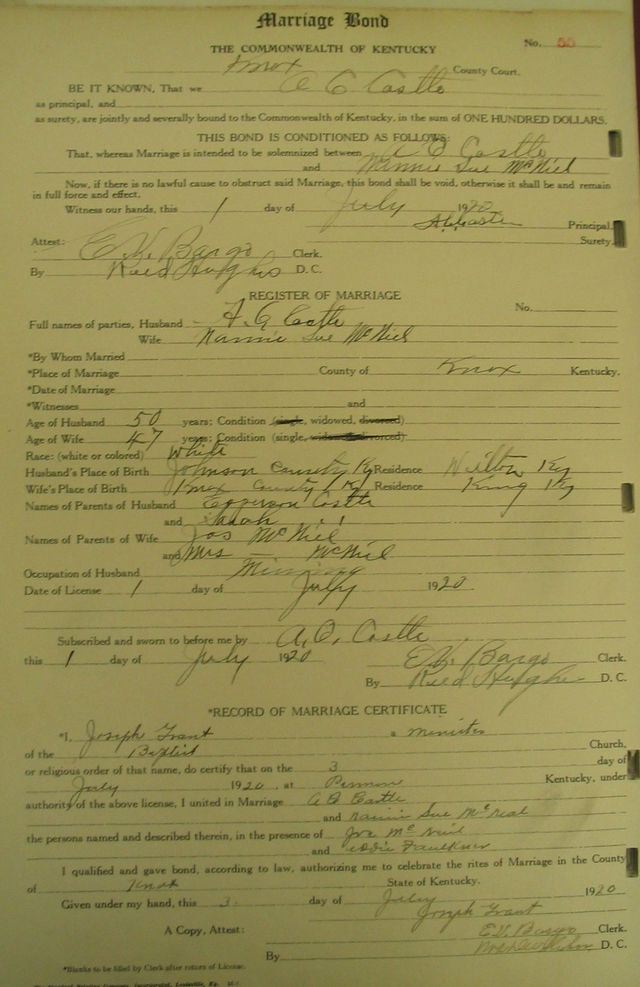 Marriage Bond
No. 55
THE COMMONWEALTH OF KENTUCKY
Knox County Court.
BE IT KNOWN, That we A C Castle
as principal, and
as surety, are jointly and severally bound to the Commonwealth of Kentucky, in the sum of ONE HUNDRED DOLLARS.
THIS BOND IS CONDITIONED AS FOLLOWS:
That, whereas Marriage is intended to be solemnized between A C Castle
and Nannie Sue McNiel
Now, if there is no lawful cause to obstruct said Marriage, this bond shall be void, otherwise it shall be and remain
in full force and effect.
Witness our hands, this 1 day of July 1920
Principal.
Surety.
Attest: E. V. Bargo Clerk.
By Reed Hughes D. C.
REGISTER OF MARRIAGE
No.
Full names of parties, Husband A. C. Castle
Wife Nannie Sue McNiel
*By Whom Married
*Place of Marriage County of Knox Kentucky.
*Date of Marriage
*Witnesses and
Age of Husband 50 years; Condition (single, widowed, divorced)
Age of Wife 47 years; Condition (single, widowed, divorced)
Race: (white or colored) White
Husband's Place of Birth Johnson County Ky Residence Wilton Ky
Wife's Place of Birth Knox County Ky Residence King Ky
Names of Parents of Husband Castle
and Sarah " "
Names of Parents of Wife Jos McNiel
and Mrs — McNiel
Occupation of Husband Mining
Date of License 1 day of July 1920
Subscribed and sworn to before me by A. C. Castle
this 1 day of July 1920 E. V. Bargo Clerk.
By Reed Hughes D. C.
*RECORD OF MARRIAGE CERTIFICATE
*I, Joseph Grant a minister
of the Baptist Church,
or religious order of that name, do certify that on the 3 day of
July 1920, at Kentucky, under
authority of the above license, I united in Marriage A C Castle
and Nannie Sue McNeal
the persons named and described therein, in the presence of McNeil
and Faulkner
I qualified and gave bond, according to law, authorizing me to celebrate the rites of Marriage in the County
of Knox State of Kentucky.
Given under my hand, this 3 day of July 1920
Joseph Grant
A Copy, Attest: E. V. Bargo Clerk.
By D. C.
*Blanks to be filled by Clerk after return of License.